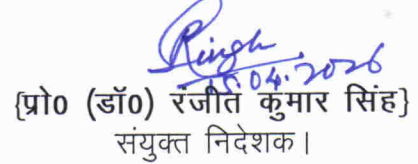 Singh
15.04.2026
{प्रो0 (डॉ0) रंजीत कुमार सिंह}
संयुक्त निदेशक।